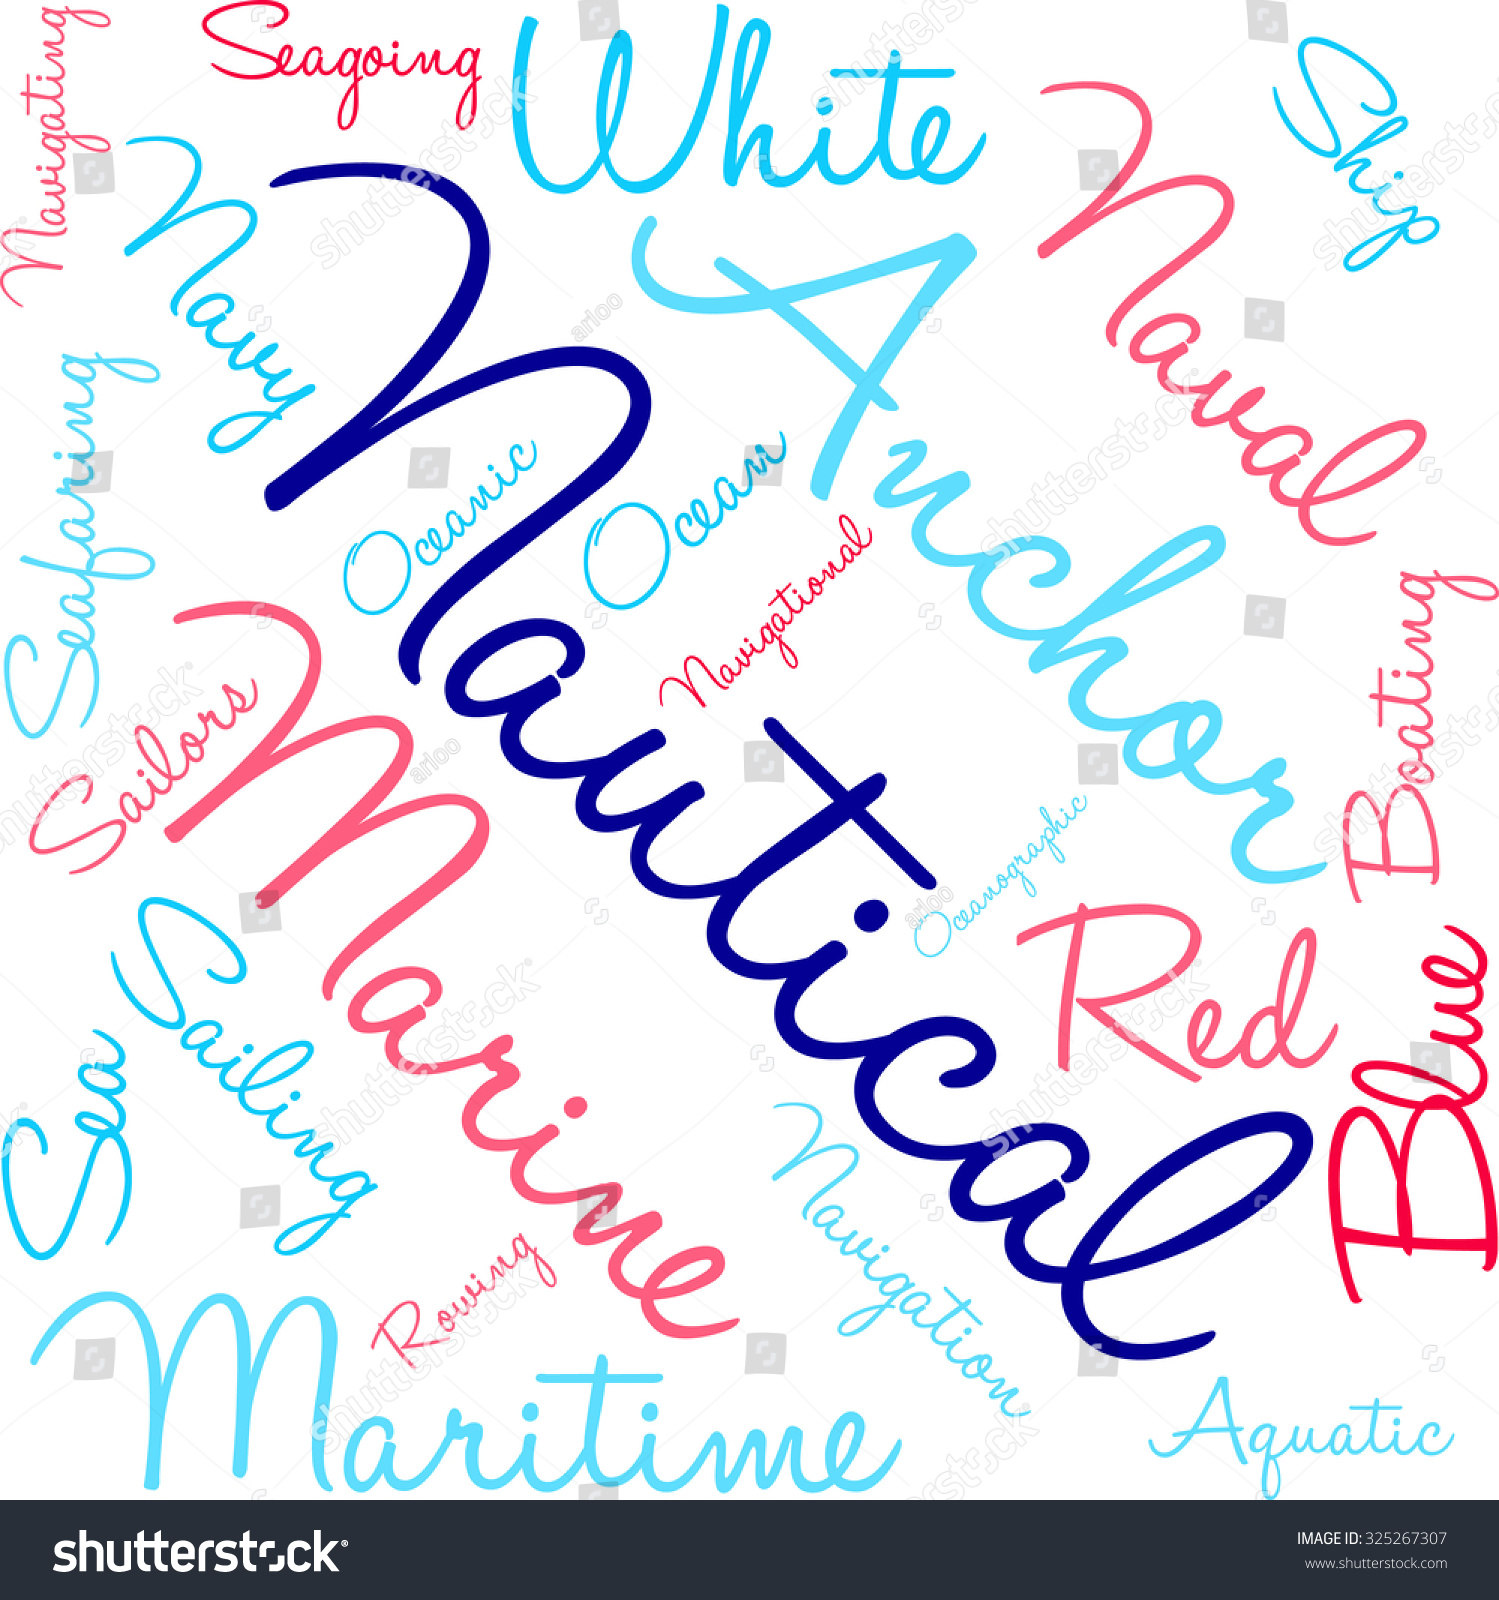 Navigating
Seagoing
White
Ship
Navy
Naval
Anchor
Nautical
Seafaring
Oceanic
Ocean
Navigational
Boating
Sailors
Marine
Oceanographic
Red
Blue
Sailing
Sea
Navigation
Rowing
Maritime
Aquatic
shutterstock
arloo
shutterstock
IMAGE ID: 325267307
www.shutterstock.com